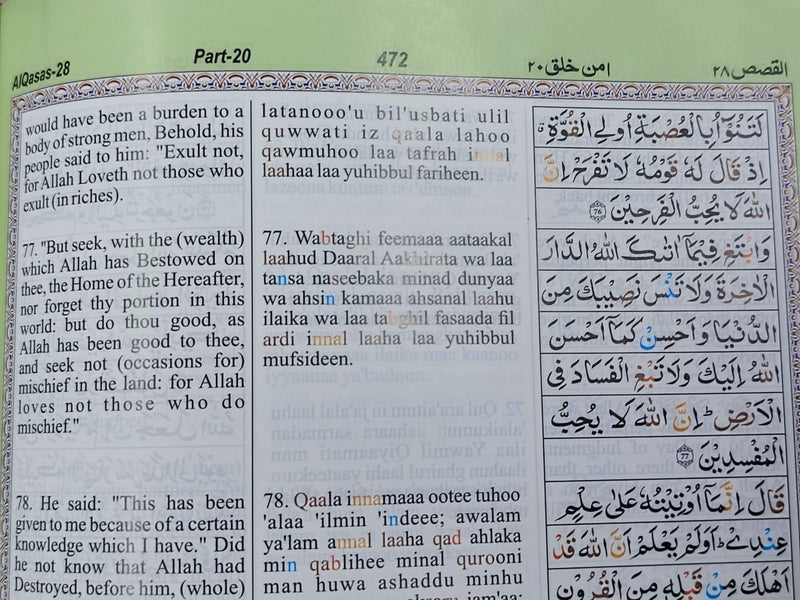 AlQasas-28
Part-20
472
امن خلق ٢٠
القصص ٢٨
would have been a burden to a
body of strong men, Behold, his
people said to him: "Exult not,
for Allah Loveth not those who
exult (in riches).
77. "But seek, with the (wealth)
which Allah has Bestowed on
thee, the Home of the Hereafter,
nor forget thy portion in this
world: but do thou good, as
Allah has been good to thee,
and seek not (occasions for)
mischief in the land: for Allah
loves not those who do
mischief."
78. He said: "This has been
given to me because of a certain
knowledge which I have." Did
he not know that Allah had
Destroyed, before him, (whole)
latanooo'u bil'usbati ulil
quwwati iz qaala lahoo
qawmuhoo laa tafrah innal
laahaa laa yuhibbul fariheen.
77. Wabtaghi feemaaa aataakal
laahud Daaral Aakhirata wa laa
tansa naseebaka minad dunyaa
wa ahsin kamaaa ahsanal laahu
ilaika wa laa tabghil fasaada fil
ardi innal laaha laa yuhibbul
mufsideen.
78. Qaala innamaaa ootee tuhoo
'alaa 'ilmin 'indeee; awalam
ya'lam annal laaha qad ahlaka
min qablihee minal qurooni
man huwa ashaddu minhu
لَتَنُوْٓاُ بِالْعُصْبَةِ اُولِى الْقُوَّةِ ۗ
اِذْ قَالَ لَهٗ قَوْمُهٗ لَا تَفْرَحْ اِنَّ
اللّٰهَ لَا يُحِبُّ الْفَرِحِيْنَ 76
وَابْتَغِ فِيْمَآ اٰتٰىكَ اللّٰهُ الدَّارَ
الْاٰخِرَةَ وَلَا تَنْسَ نَصِيْبَكَ مِنَ
الدُّنْيَا وَاَحْسِنْ كَمَآ اَحْسَنَ
اللّٰهُ اِلَيْكَ وَلَا تَبْغِ الْفَسَادَ فِى
الْاَرْضِ ؕ اِنَّ اللّٰهَ لَا يُحِبُّ
الْمُفْسِدِيْنَ 77
قَالَ اِنَّمَآ اُوْتِيْتُهٗ عَلٰى عِلْمٍ
عِنْدِىْ ؕ اَوَلَمْ يَعْلَمْ اَنَّ اللّٰهَ قَدْ
اَهْلَكَ مِنْ قَبْلِهٖ مِنَ الْقُرُوْنِ